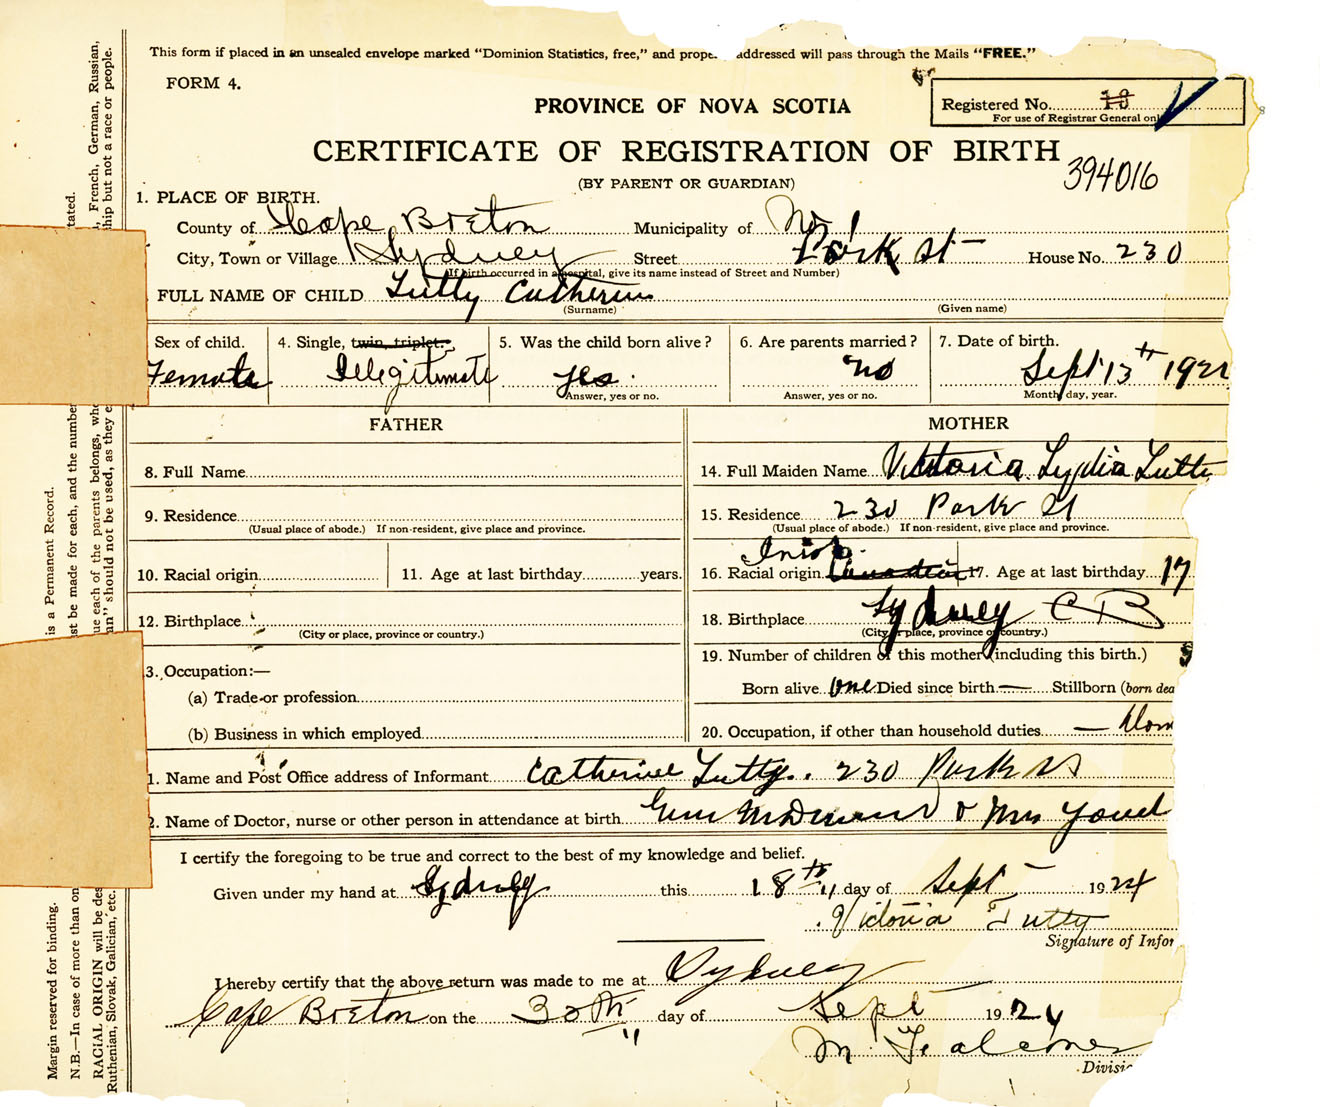 This form if placed in an unsealed envelope marked "Dominion Statistics, free," and prope addressed will pass through the Mails "FREE."
FORM 4.
PROVINCE OF NOVA SCOTIA
Registered No. 13
For use of Registrar General only
CERTIFICATE OF REGISTRATION OF BIRTH
394016
(BY PARENT OR GUARDIAN)
1. PLACE OF BIRTH.
County of Cape Breton Municipality of No 1
City, Town or Village Sydney Street Park St House No. 230
(If birth occurred in a hospital, give its name instead of Street and Number)
FULL NAME OF CHILD Tutty Catherine
(Surname) (Given name)
Sex of child. 4. Single, twin, triplet. 5. Was the child born alive? 6. Are parents married? 7. Date of birth.
Female Illegitimate yes. no Sept 13th 192
Answer, yes or no. Answer, yes or no. Month, day, year.
FATHER MOTHER
8. Full Name 14. Full Maiden Name Victoria Lydia Tutty
9. Residence 15. Residence 230 Park St
(Usual place of abode.) If non-resident, give place and province. (Usual place of abode.) If non-resident, give place and province.
Irish
10. Racial origin 11. Age at last birthday years. 16. Racial origin Canadian 17. Age at last birthday 17
12. Birthplace 18. Birthplace Sydney C B
(City or place, province or country.) (City or place, province or country.)
3. Occupation:— 19. Number of children of this mother (including this birth.)
(a) Trade or profession Born alive one Died since birth — Stillborn (born dea
(b) Business in which employed 20. Occupation, if other than household duties — Dom
1. Name and Post Office address of Informant Catherine Tutty. 230 Park St
2. Name of Doctor, nurse or other person in attendance at birth & Mrs
I certify the foregoing to be true and correct to the best of my knowledge and belief.
Given under my hand at Sydney this 18th day of Sept 1924
Victoria Tutty
Signature of Infor
I hereby certify that the above return was made to me at Sydney
Cape Breton on the 30th day of Sept 1924
M.
Divisio
Margin reserved for binding.
is a Permanent Record.
N.B.—In case of more than on
st be made for each, and the number
tated.
RACIAL ORIGIN will be des
ue each of the parents belongs, whe
, French, German, Russian,
Ruthenian, Slovak, Galician, etc.
an" should not be used, as they e
ship but not a race or people.